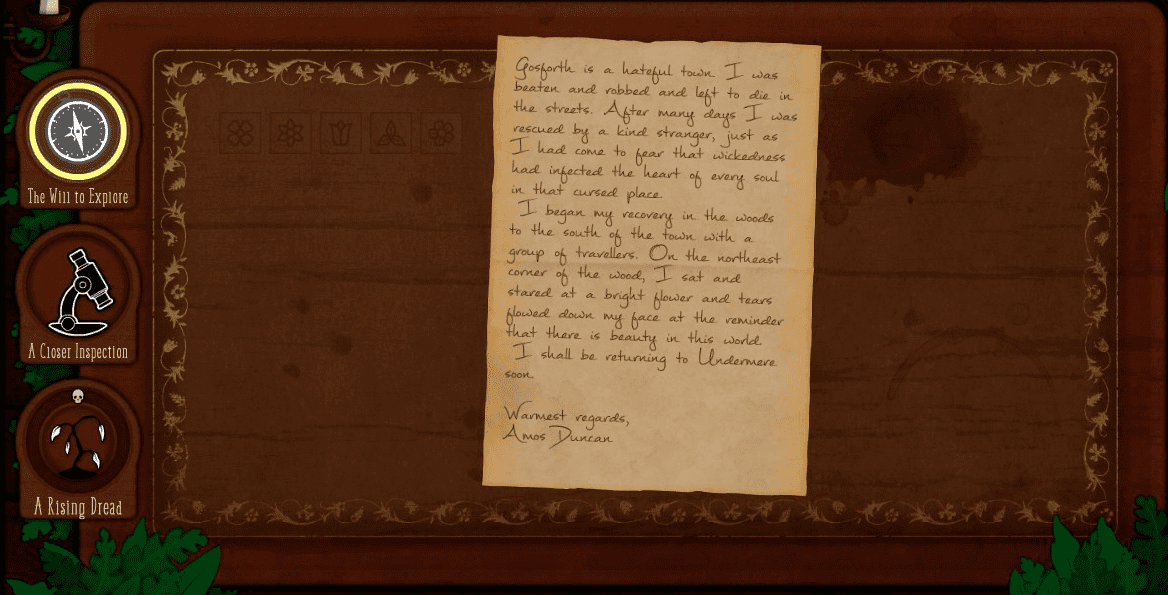 The Will to Explore
A Closer Inspection
A Rising Dread
Gosforth is a hateful town I was
beaten and robbed and left to die in
the streets. After many days I was
rescued by a kind stranger, just as
I had come to fear that wickedness
had infected the heart of every soul
in that cursed place.
I began my recovery in the woods
to the south of the town with a
group of travellers. On the northeast
corner of the wood, I sat and
stared at a bright flower and tears
flowed down my face at the reminder
that there is beauty in this world
I shall be returning to Undermere
soon.
Warmest regards,
Amos Duncan